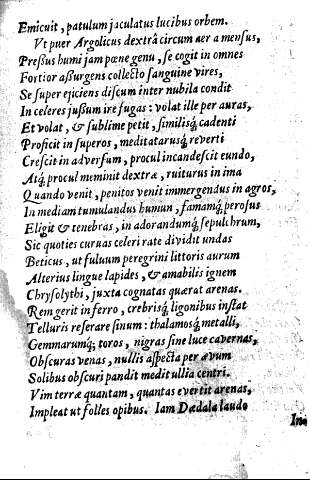 Emicuit, patulum jaculatus lucibus orbem.
Vt puer Argolicus dextrâ circum aer a mensus,
Preſſus humi jam pœne genu, ſe cogit in omnes
Fortior aſſurgens collecto ſanguine vires,
Se ſuper ejiciens diſcum inter nubila condit
In celeres juſſum ire fugas: volat ille per auras,
Et volat, & ſublime petit, ſimilisq́; cadenti
Proficit in ſuperos, meditatarusq́; reverti
Creſcit in adverſum, procul incandeſcit eundo,
Atq́; procul meminit dextræ, ruiturus in ima
Quando venit, penitos venit immergendus in agros,
In mediam tumulandus humun, famamq́; peroſus
Eligit & tenebras, in adorandumq́; ſepulchrum,
Sic quoties curuas celeri rate dividit undas
Beticus, ut fuluum peregrini littoris aurum
Alterius lingue lapides, & amabilis ignem
Chryſolythi, juxta cognatas quærat arenas.
Rem gerit in ferro, crebrisq́; ligonibus inſtat
Telluris reſerare ſinum: thalamosq́; metalli,
Gemmarumq́; toros, nigras ſine luce cavernas,
Obſcuras venas, nullis aſpecta per ævum
Solibus obſcuri pandit meditullia centri.
Vim terræ quantam, quantas evertit arenas,
Impleat ut folles opibus. Iam Dædala laudo